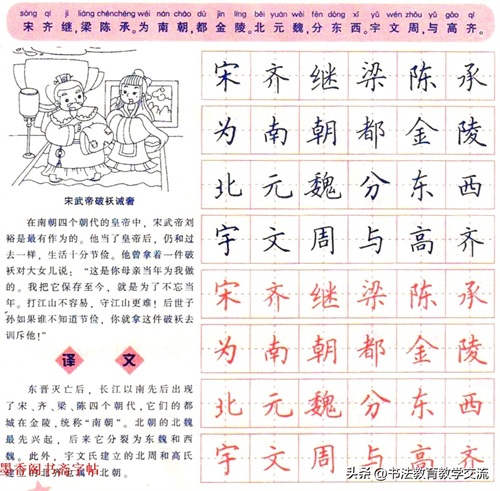 sòng qí jì liáng chén chéng wéi nán cháo dū jīn líng běi yuán wèi fēn dōng xī yǔ wén zhōu yǔ gāo qí
宋齐继,梁陈承。为南朝,都金陵。北元魏,分东西。宇文周,与高齐。
宋武帝破袄诫奢
在南朝四个朝代的皇帝中，宋武帝刘
裕是最有作为的。他当了皇帝后，仍和过
去一样，生活十分节俭。他曾拿着一件破
袄对大女儿说：“这是你母亲当年为我做
的。我把它保存至今，就是为了不忘当
年。打江山不容易，守江山更难！后世子
孙如果谁不知道节俭，你就拿这件破袄去
训斥他！”
译文
东晋灭亡后，长江以南先后出现
了宋、齐、梁、陈四个朝代，它们的都
城在金陵，统称“南朝”。北朝的北魏
最先兴起，后来它分裂为东魏和西
魏。此外，宇文氏建立的北周和高氏
建立的北齐也属于北朝。
宋齐继梁陈承
为南朝都金陵
北元魏分东西
宇文周与高齐
宋齐继梁陈承
为南朝都金陵
北元魏分东西
宇文周与高齐
墨香阁书斋字帖
头条@书法教育教学交流